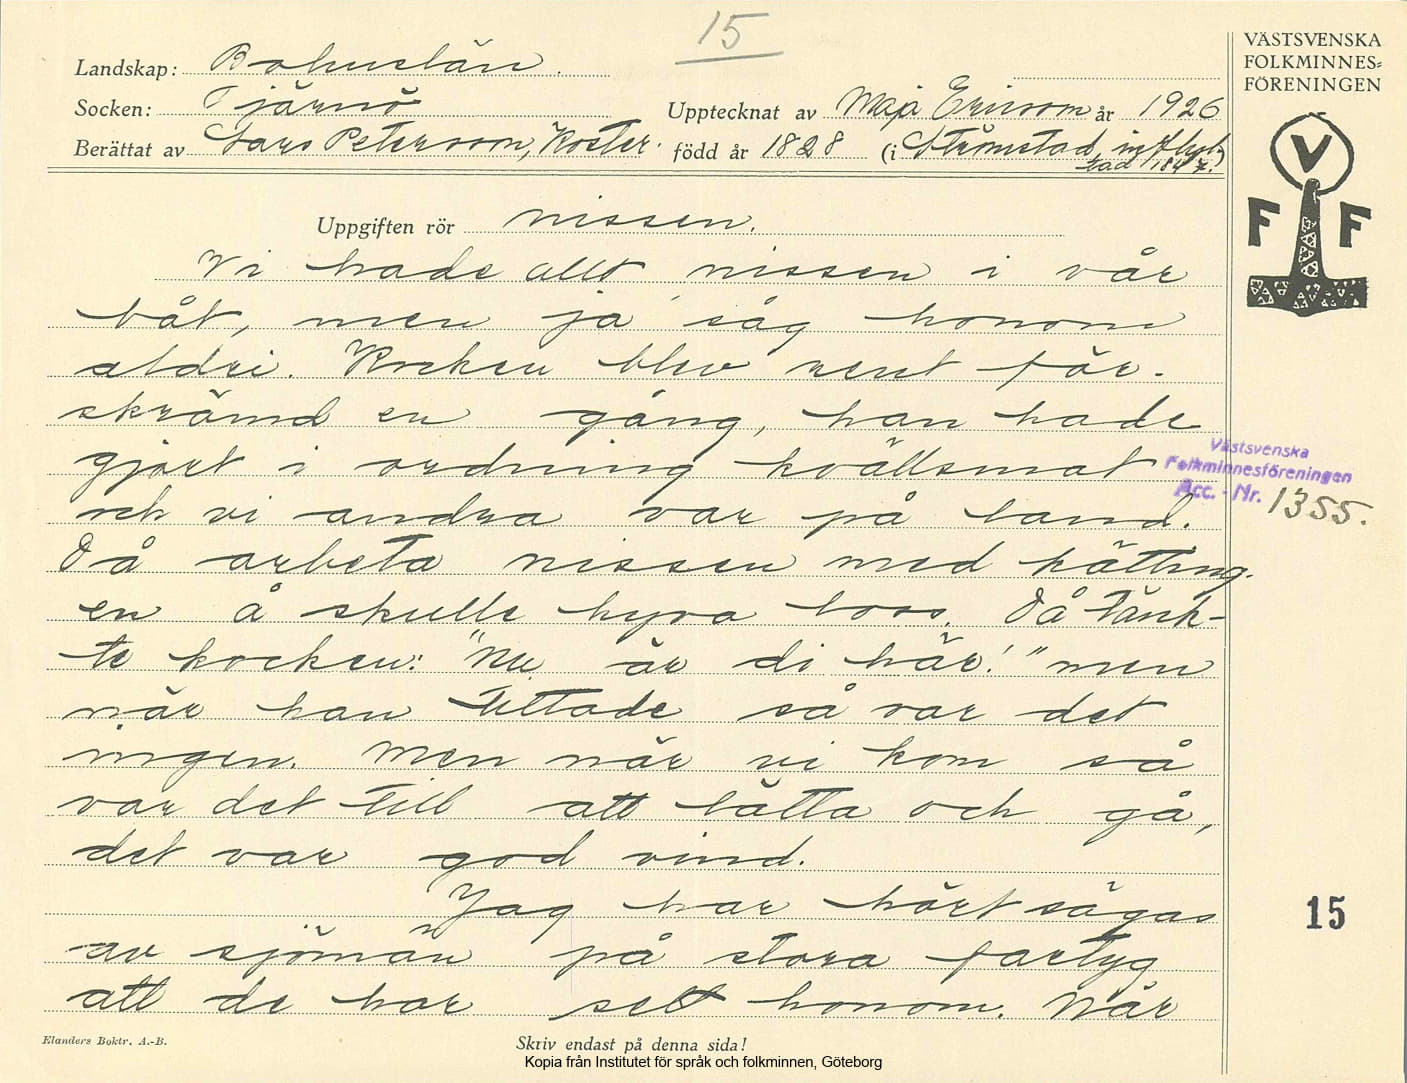 15
VÄSTSVENSKA
FOLKMINNES-
FÖRENINGEN
Landskap: Bohuslän.
Socken: Tjärnö
Upptecknat av Maja Ericson år 1926
Berättat av Lars Peterson, Koster.
född år 1828 (i Strömstad, inflyt-
tad 1847.)
V
F F
Uppgiften rör nissen.
Vi hade allt nissen i vår
båt, men ja såg honom
aldri. Kocken blev rent för-
skrämd en gång, han hade
gjort i ordning kvällsmat
och vi andra var på land.
Då arbeta nissen med kätting-
en å skulle hyva loss. Då tänk-
te kocken: "Nu är di här!" men
när han tittade så var det
ingen. Men när vi kom så
var det till att lätta och gå,
det var god vind.
Jag har hört sägas
av sjömän på stora fartyg
att de har sett honom. När
Västsvenska
Folkminnesföreningen
Acc. - Nr. 1355.
15
Elanders Boktr. A.-B.
Skriv endast på denna sida!
Kopia från Institutet för språk och folkminnen, Göteborg